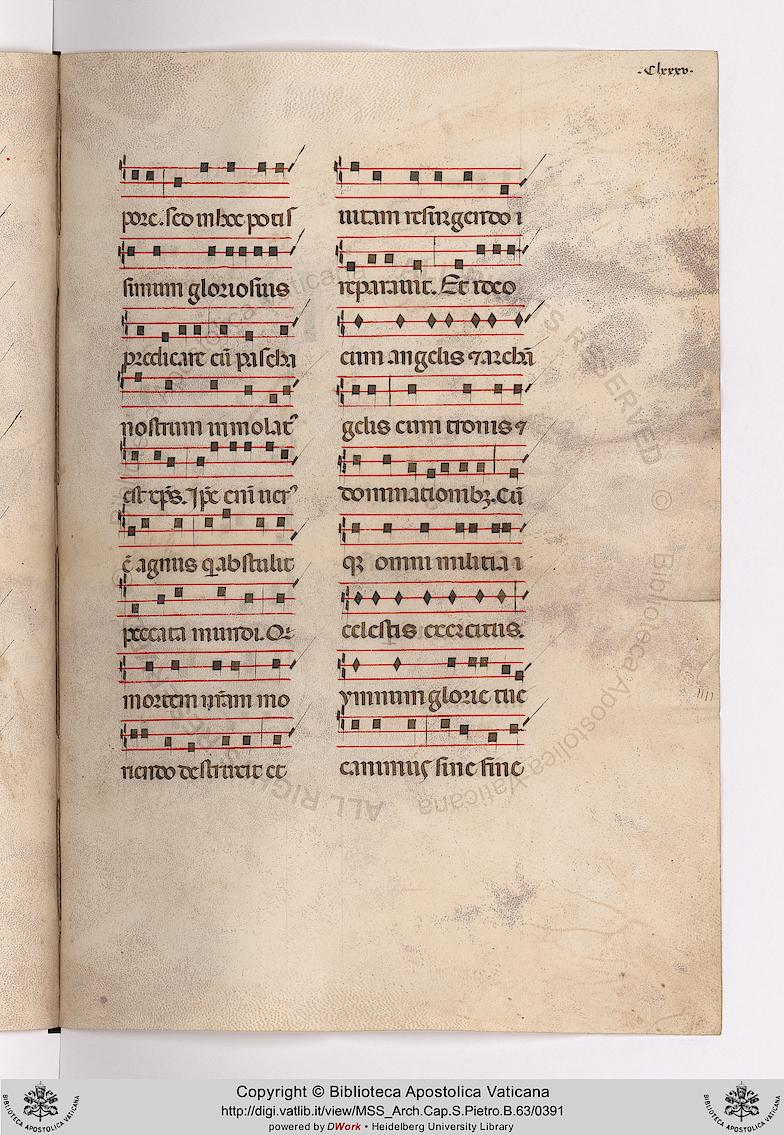 ·Clxxxv·
pore. sed in hoc potis
simum gloriosius
predicare cū pascha
nostrum immolat᷒
est xp̄s. Ip̄e enī uer᷒
ē agnus q̄ abstulit
peccata mundi. Qi
mortem nr̄am mo
riendo destruxit et
uitam resurgendo i
reparauit. Et ideo
cum angelis ⁊ archā
gelis cum tronis ⁊
dominationibꝫ. Cū
qꝫ omni militia i
celestis exercitus.
ymnum glorie tue
canimus sine fine
ALL RIGHTS RESERVED © Biblioteca Apostolica Vaticana
Copyright © Biblioteca Apostolica Vaticana
http://digi.vatlib.it/view/MSS_Arch.Cap.S.Pietro.B.63/0391
powered by DWork • Heidelberg University Library
BIBLIOTECA APOSTOLICA VATICANA
BIBLIOTECA APOSTOLICA VATICANA